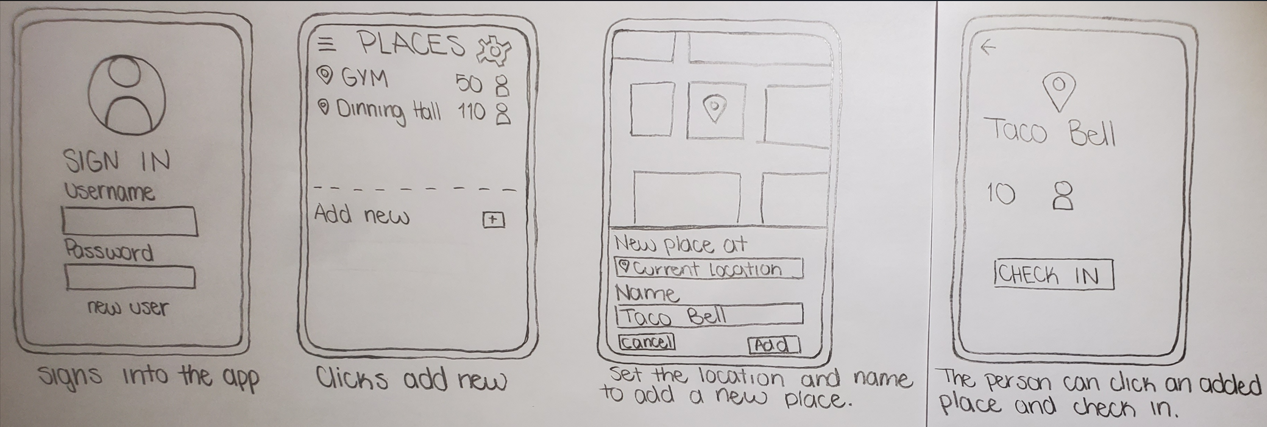 SIGN IN
Username
Password
new user
Signs into the app
PLACES
GYM 50
Dinning Hall 110
Add new +
Clicks add new
New place at
Current location
Name
Taco Bell
Cancel Add
Set the location and name
to add a new place.
Taco Bell
10
CHECK IN
The person can click an added
place and check in.